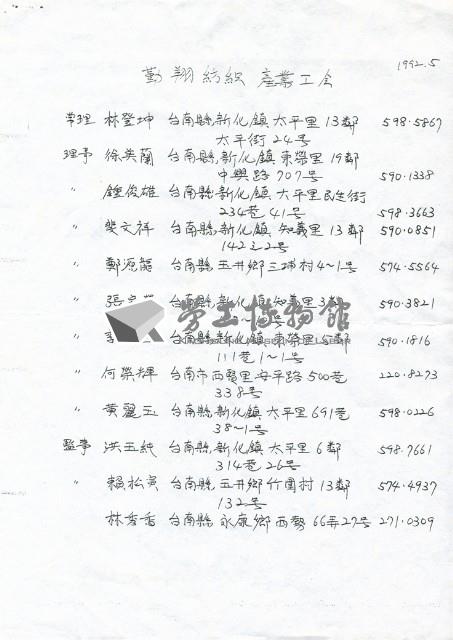 1992.5
勤翔紡織 產業工会
常理 林登坤 台南縣新化鎮太平里13鄰 598.5867
太平街24号
理事 徐美蘭 台南縣新化鎮東榮里19鄰
中興路707号 590.1338
〃 鍾俊雄 台南縣新化鎮太平里民生街
234巷41号 598.3663
〃 裴文祥 台南縣新化鎮知義里13鄰 590.0851
142之2号
〃 鄭源龍 台南縣玉井鄉三埔村4~1号 574.5564
〃 張 台南縣新化鎮知義里3鄰 590.3821
号
勞工博物館
〃 李 台南縣新化鎮東榮里5鄰 590.1816
111巷1~1号
〃 何榮輝 台南市西賢里安平路500巷 220.8273
338号
〃 黃麗玉 台南縣新化鎮太平里691巷 598.0226
38~1号
監事 洪玉純 台南縣新化鎮太平里6鄰 598.7661
314巷26号
〃 賴松 台南縣玉井鄉竹圍村13鄰 574.4937
132号
林秀香 台南縣永康鄉西勢66弄27号 271.0309